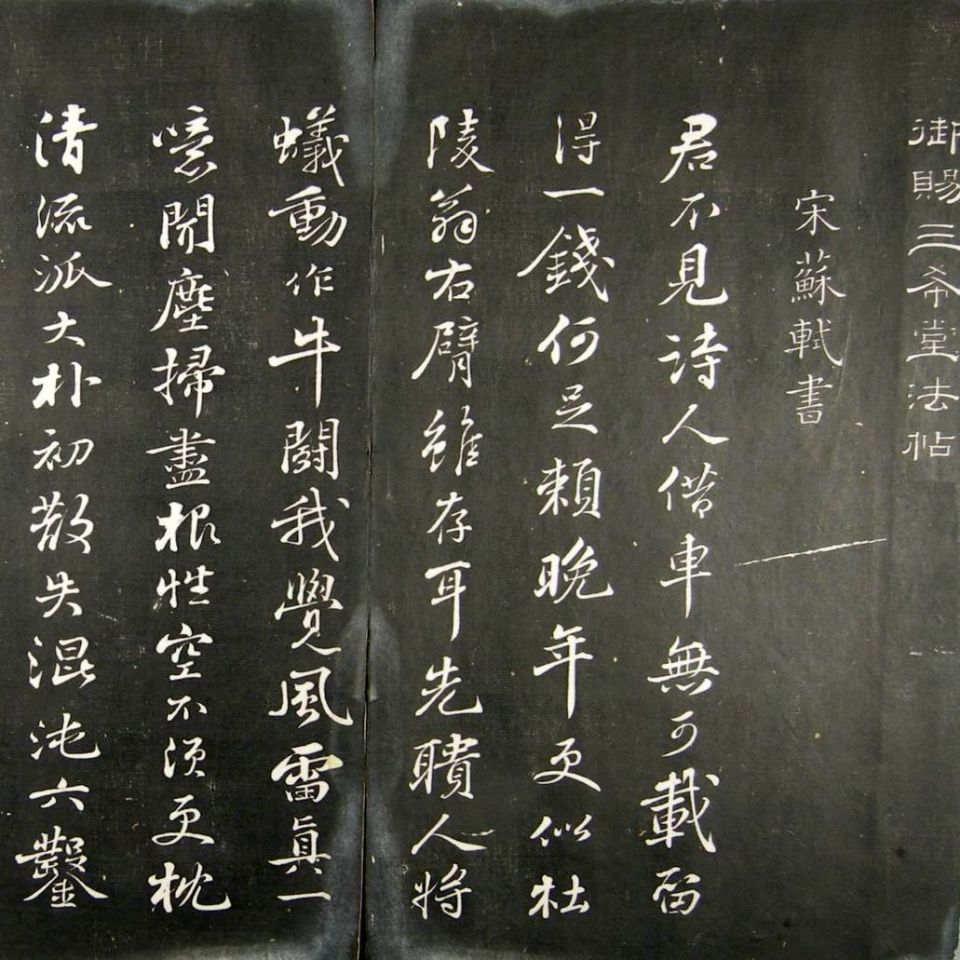 御賜三希堂法帖
宋蘇軾書
君不見詩人借車無可載留
得一錢何足賴晚年更似杜
陵翁右臂雖存耳先聵人將
蟻動作牛鬪我覺風雷眞一
噫聞塵掃盡根性空不須更枕
清流派大朴初散失混沌六鑿